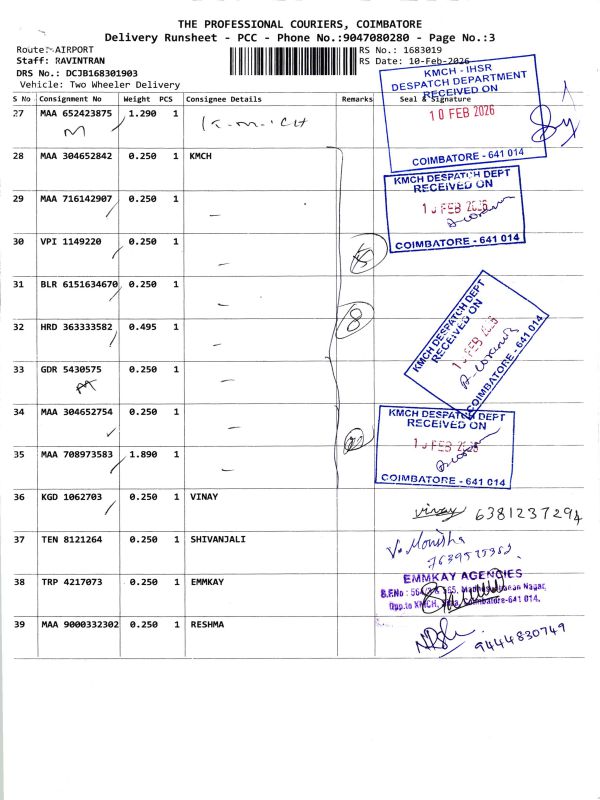 THE PROFESSIONAL COURIERS, COIMBATORE
Delivery Runsheet - PCC - Phone No.:9047080280 - Page No.:3
Route: AIRPORT
RS No.: 1683019
Staff: RAVINTRAN
RS Date: 10-Feb-2026
DRS No.: DCJB168301903
Vehicle: Two Wheeler Delivery
S No Consignment No Weight PCS Consignee Details Remarks Seal & Signature
27 MAA 652423875 1.290 1 K-M-CH
M
KMCH - IHSR
DESPATCH DEPARTMENT
RECEIVED ON
10 FEB 2026
COIMBATORE - 641 014
28 MAA 304652842 0.250 1 KMCH
29 MAA 716142907 0.250 1 -
KMCH DESPATCH DEPT
RECEIVED ON
10 FEB 2026
COIMBATORE - 641 014
30 VPI 1149220 0.250 1 -
31 BLR 6151634670 0.250 1 -
8
32 HRD 363333582 0.495 1 -
KMCH DESPATCH DEPT
RECEIVED ON
10 FEB 2026
COIMBATORE - 641 014
33 GDR 5430575 0.250 1 -
34 MAA 304652754 0.250 1 -
KMCH DESPATCH DEPT
RECEIVED ON
10 FEB 2026
COIMBATORE - 641 014
35 MAA 708973583 1.890 1 -
36 KGD 1062703 0.250 1 VINAY
vinay 6381237294
37 TEN 8121264 0.250 1 SHIVANJALI
V. Monisha
38 TRP 4217073 0.250 1 EMMKAY
EMMKAY AGENCIES
B.F.No : Nagar,
Opp.to KMCH, Coimbatore-641 014.
39 MAA 9000332302 0.250 1 RESHMA
9444830749